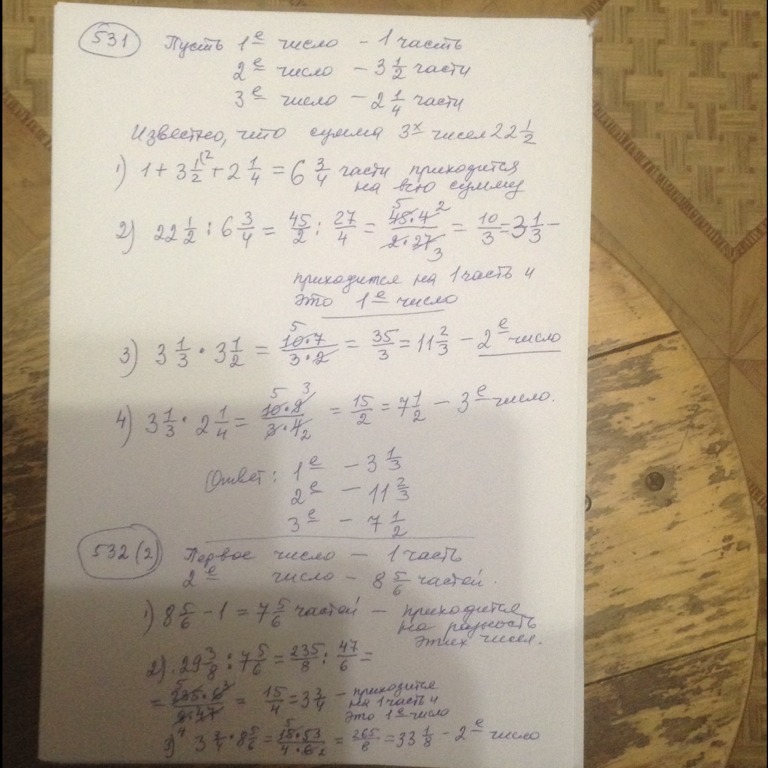 531 Пусть 1е число – 1 часть
2е число – 3 1/2 части
3е число – 2 1/4 части
Известно, что сумма 3х чисел 22 1/2
1) 1 + 3 1/2 + 2 1/4 = 6 3/4 части приходится
на всю сумму
2) 22 1/2 : 6 3/4 = 45/2 : 27/4 = 45·4/2·27 = 10/3 = 3 1/3 –
приходится на 1 часть и
это 1е число
3) 3 1/3 · 3 1/2 = 10·7/3·2 = 35/3 = 11 2/3 – 2е число
4) 3 1/3 · 2 1/4 = 10·9/3·4 = 15/2 = 7 1/2 – 3е число.
Ответ: 1е – 3 1/3
2е – 11 2/3
3е – 7 1/2
532 (2) Первое число – 1 часть
2е число – 8 5/6 частей.
1) 8 5/6 – 1 = 7 5/6 частей – приходится
на разность
этих чисел.
2) 29 3/8 : 7 5/6 = 235/8 : 47/6 =
= 235·6/8·47 = 15/4 = 3 3/4 – приходится
на 1 часть и
это 1е число
3) 3 3/4 · 8 5/6 = 15·53/4·6 = 265/8 = 33 1/8 – 2е число